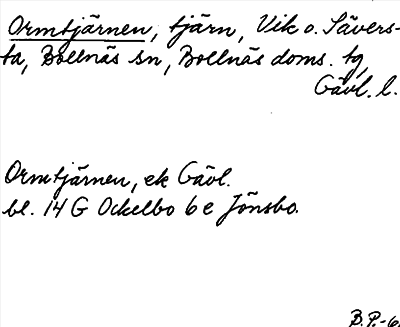 Ormtjärnen, tjärn, Vik o. Sävers-
ta, Bollnäs sn, Bollnäs doms. tg,
Gävl. l.
Ormtjärnen, ek Gävl.
bl. 14 G Ockelbo 6 e Jönsbo.
B.P.-6